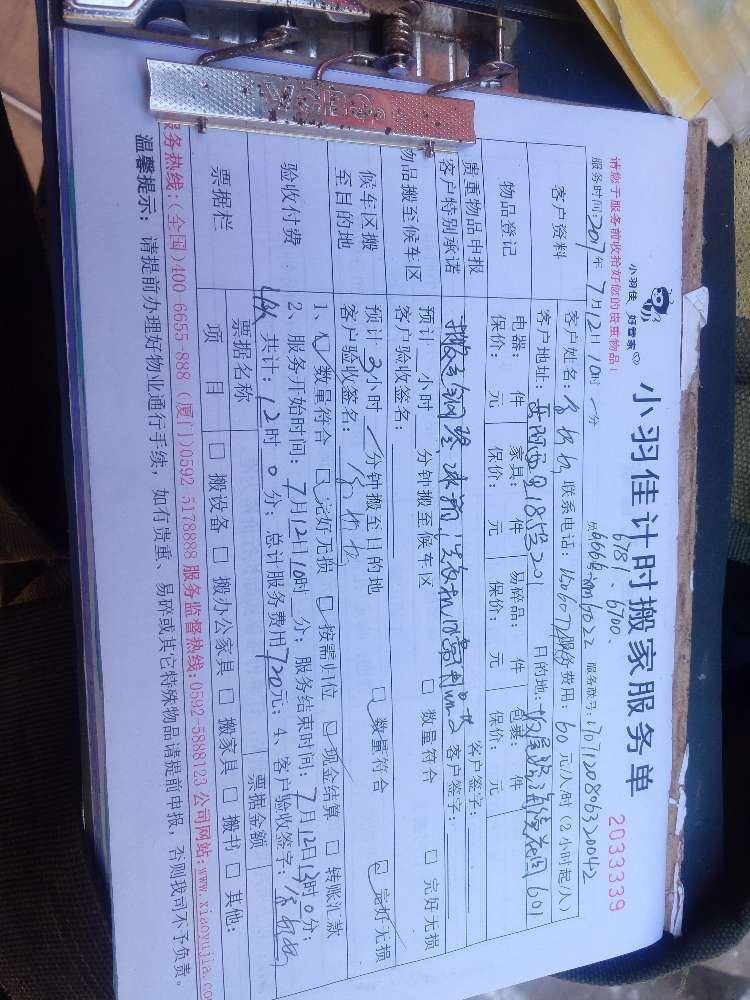 小羽佳 好管家
小羽佳计时搬家服务单
2033339
请您于服务前收拾好您的贵重物品!
678、6700、
服务时间:2017年7月12日10时 分 6022 服务联号:1707120806320042
客户资料
客户姓名: 联系电话: 服务费用:60元/人/时(2小时起/人)
客户地址: 185号201 目的地: 601
物品登记
电器: 件 家具: 件 易碎品: 件 包裹: 件
保价: 元 保价: 元 保价: 元 保价: 元
贵重物品申报
客户签字:
客户特别承诺
客户签字:
物品搬至候车区
预计 小时 分钟搬至候车区 □ 数量符合 □ 完好无损
客户验收签名:
候车区搬至目的地
预计3小时 分钟搬至目的地 □ 数量符合 □ 完好无损
客户验收签名:
验收付费
1、□ 数量符合 □ 完好无损 □ 按需归位 □ 现金结算 □ 转账汇款
2、服务开始时间:7月12日10时 分;服务结束时间:7月12日13时0分;
共计:12时0分;总计服务费用720元;4、客户验收签字:
票据栏
票据名称 票据金额
项 目 □ 搬设备 □ 搬办公家具 □ 搬家具 □ 搬书 □ 其他:
服务热线:(全国)400-6655-888 (厦门)0592-5178888 服务监督热线:0592-5888123 公司网站:www.xiaoyujia.co
温馨提示:请提前办理好物业通行手续,如有贵重、易碎或其它特殊物品请提前申报,否则我司不予负责。